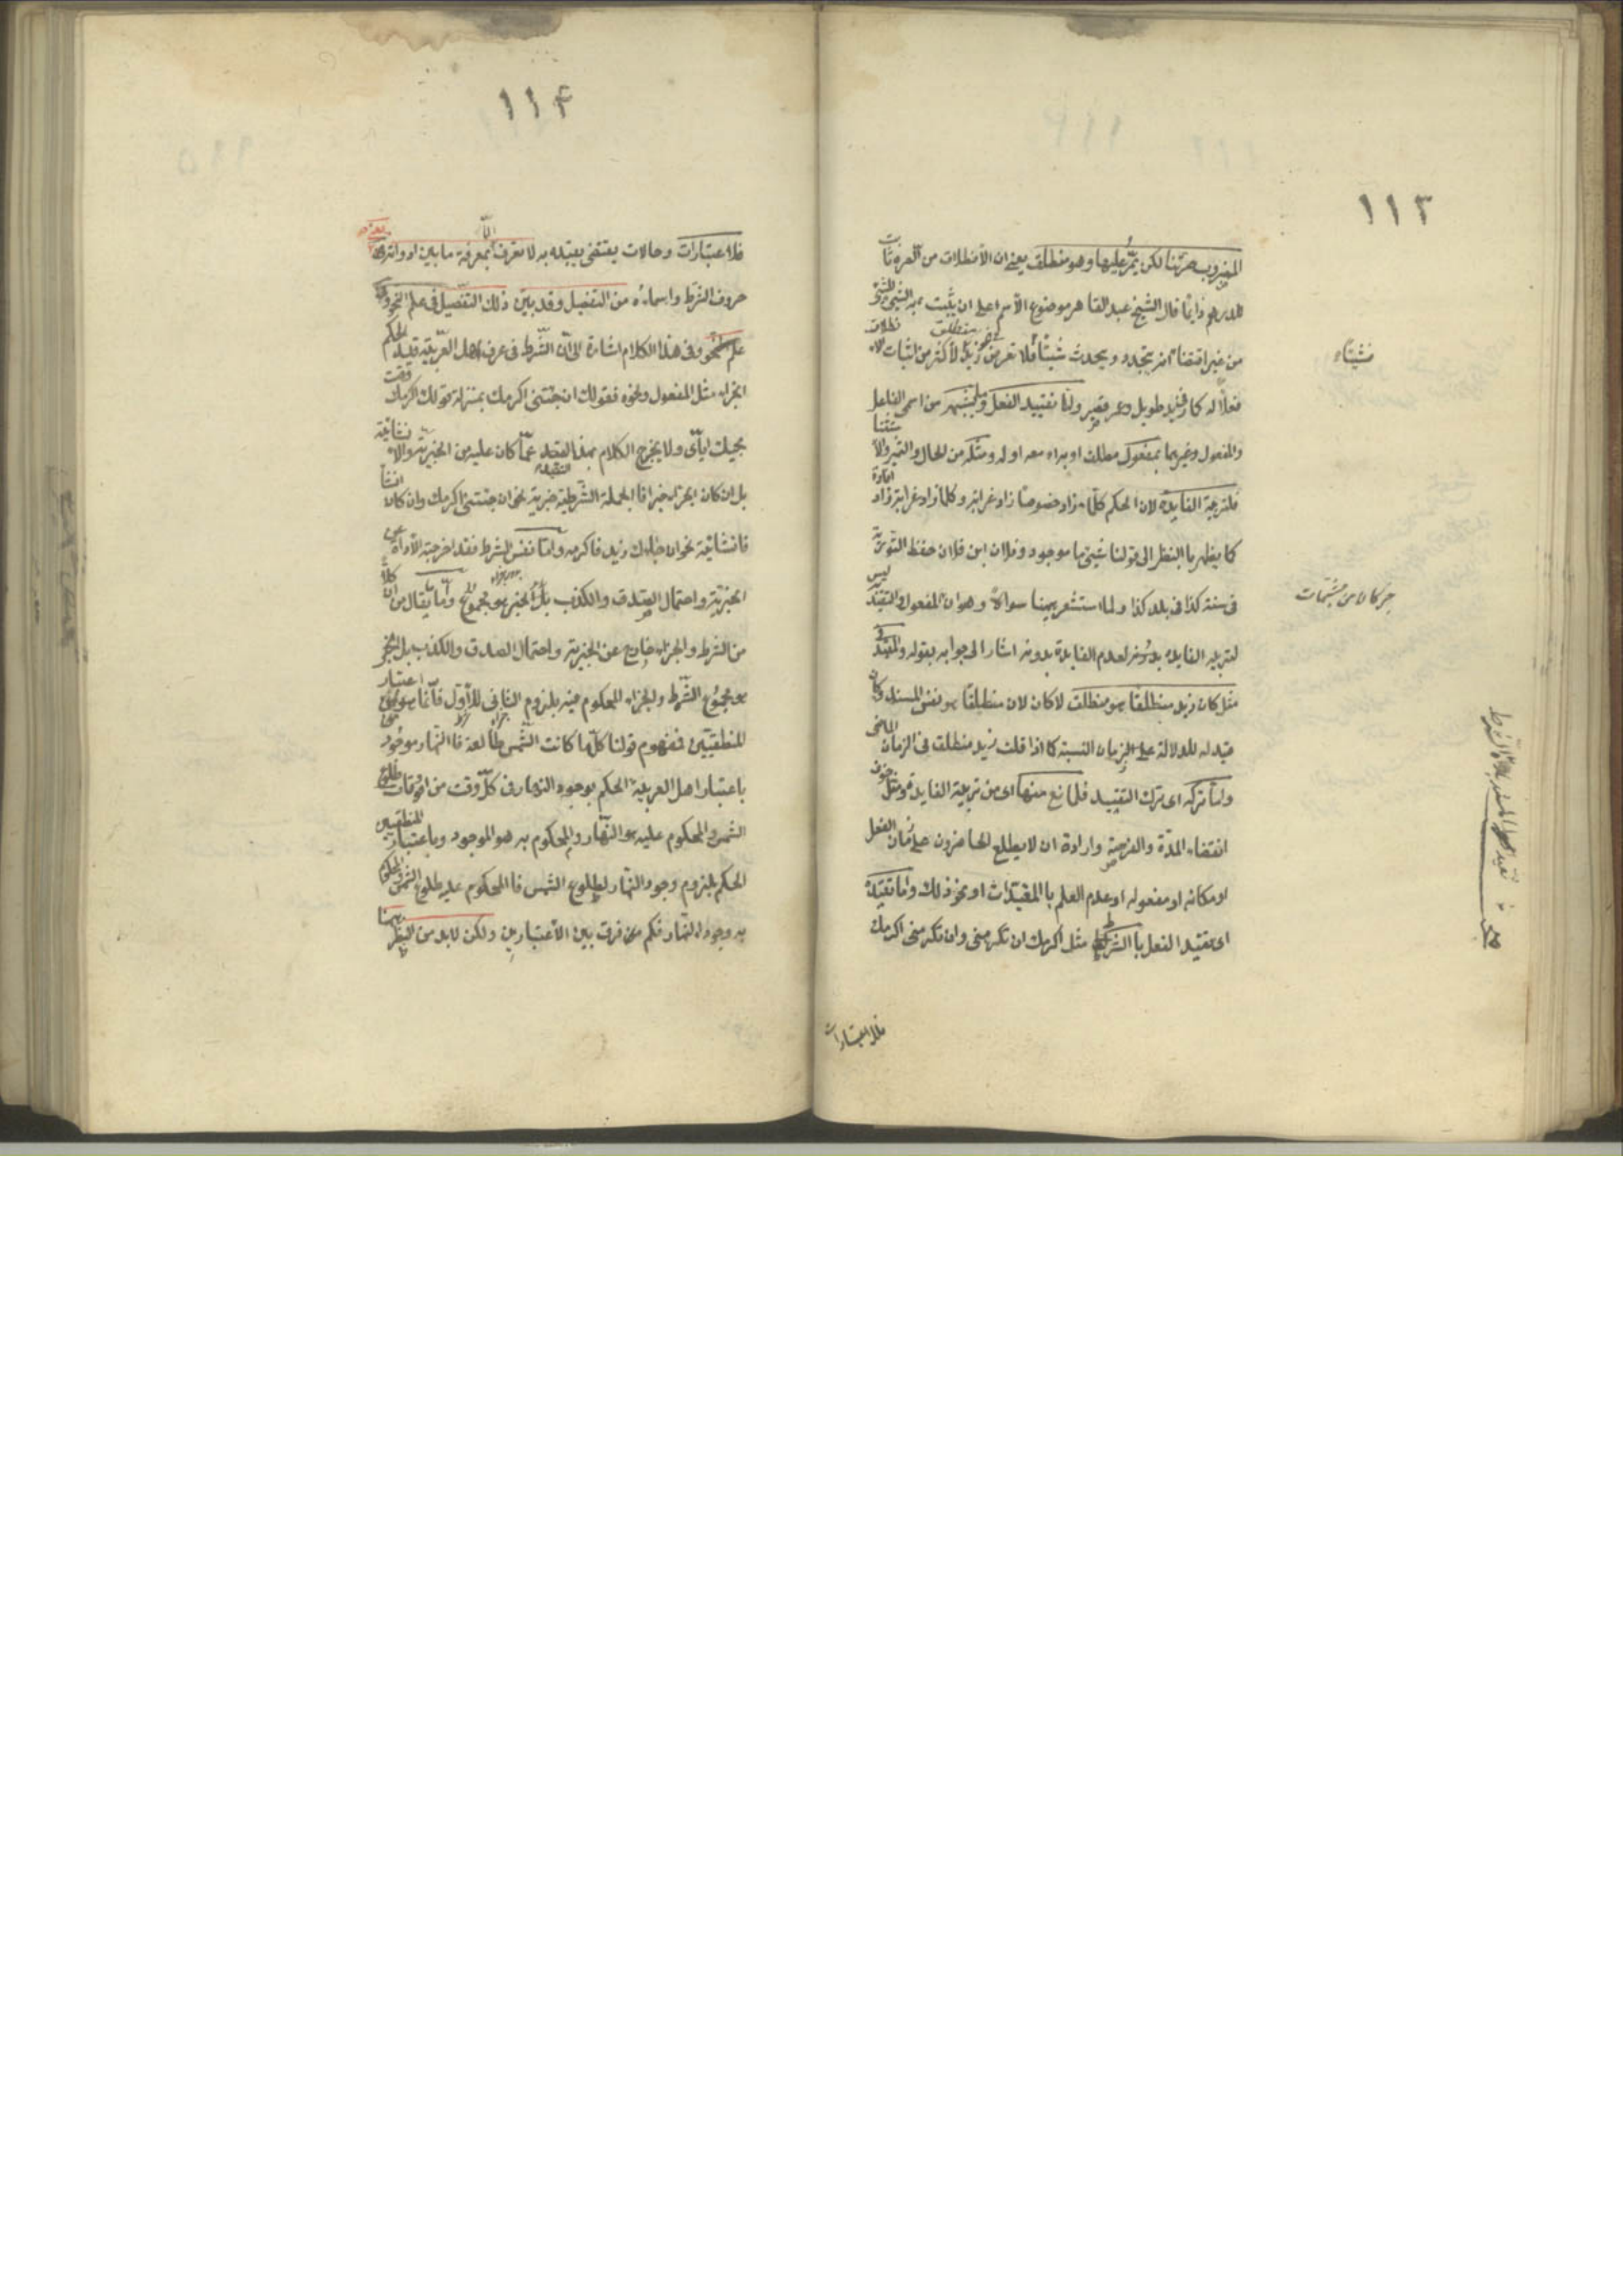 ١١٣
المضروب صرتنا لكن يمرّ عليها وهو منطلق يعنى ان الأنطلاق من الصرة ثابت
للدرهم دايمًا قال الشيخ عبد القاهر موضوع الأسم على ان يثبت به الشيئ للشئ
من غير اقتضاء انه يتجدد ويحدث شيئًا فلا تعرض فى نحو زيد منطلق لأكثر من اثبات الانطلاق
فعلًا له كما فى زيد طويل وعمر قصير وامّا تقييد الفعل وما يشبهه من اسمى الفاعل
والمفعول وغيرهما بمفعول مطلق او به او معه او له ومثله من الحال والتميز والاستثنا
فلتربية الفايدة لان الحكم كلّما زاد خصوصًا زاد غرابة وكلما زاد غرابة زاد افادة
كما يظهر باالنظر الى قولنا شيئ ما موجود وفلان ابن فلان حفظ التورية
فى سنة كذا فى بلد كذا ولما استشعر ههنا سوالًا وهو ان المفعول والتقيد ليس
لتربية الفايدة بدونه لعدم الفايدة بدونه اشار الى جوابه بقوله والمقيد فى
مثل كان زيد منطلقًا هو منطلقا لا كان لان منطلقًا هو نفس المسند وكان
قيد له للدلالة على زمان النسبة كما اذا قلت زيد منطلق فى الزمان الماضى
وامّا تركه اى ترك التقييد فلمانع منها اى من تربية الفايدة مثل خوف
انقضاء المدّة والفرصة وارادة ان لا يطلع الحاضرون على زمان الفعل
او مكانه او مفعوله او عدم العلم باالمقيدات او نحو ذلك وامّا تقيده
اى تقيد الفعل باالشرط مثل اكرمك ان تكرمنى وان تكرمنى اكرمك
فلاعتبارات
١١٤
فلاعتبارات وحالات يقتضى تقييده به لا تعرف الّا بمعرفة ما بين ادواته يعنى
حروف الشرط واسماءه من التفصيل وقد بيّن ذلك التفصيل فى علم النحو
علم النحو وفى هذا الكلام اشارة الى أنّ الشّرط فى عرف اهل العربيّة قيد لحكم
الجزاء مثل المفعول ونحوه فقولك ان جئتنى اكرمك بمنزلة قولك اكرمك وقت
مجيئك ايّاى ولا يخرج الكلام بهذا القيد عمّا كان عليه من الخبرية والانشائية
بل ان كان الجزاء خبرا فاالجملة الشّرطية خبرية نحو ان جئتنى اكرمك وان كان انشا
فانشائيّة نحو ان جاءك زيد فاكرمه وامّا نفس الشرط فقد اخرجته الأداة عن
الخبرية واحتمال الصدق والكذب وامّا يقال من ان كلًا
من الشرط والجزاء خارج عن الخبرية واحتمال الصدق والكذب بل الخبر
هو مجموع الشّرط والجزاء المحكوم فيه بلزوم الثانى للأوّل فانّما هو اعتبار
المنطقيّين فمفهوم قولنا كلّما كانت الشّمس طالعة فاالنّهار موجود
باعتبار اهل العربية الحكم بوجود النهار فى كلّ وقت من اوقات طلوع
الشمس والمحكوم عليه هو النّهار والمحكوم به هو الموجود وباعتبار المنطقيين
الحكم بلزوم وجود النّهار لطلوع الشمس فاالمحكوم عليه طلوع الشّمس والمحكوم
به وجود النّهار فكم من فرق بين الأعتبارين ولكن لابد من النظر ههنا